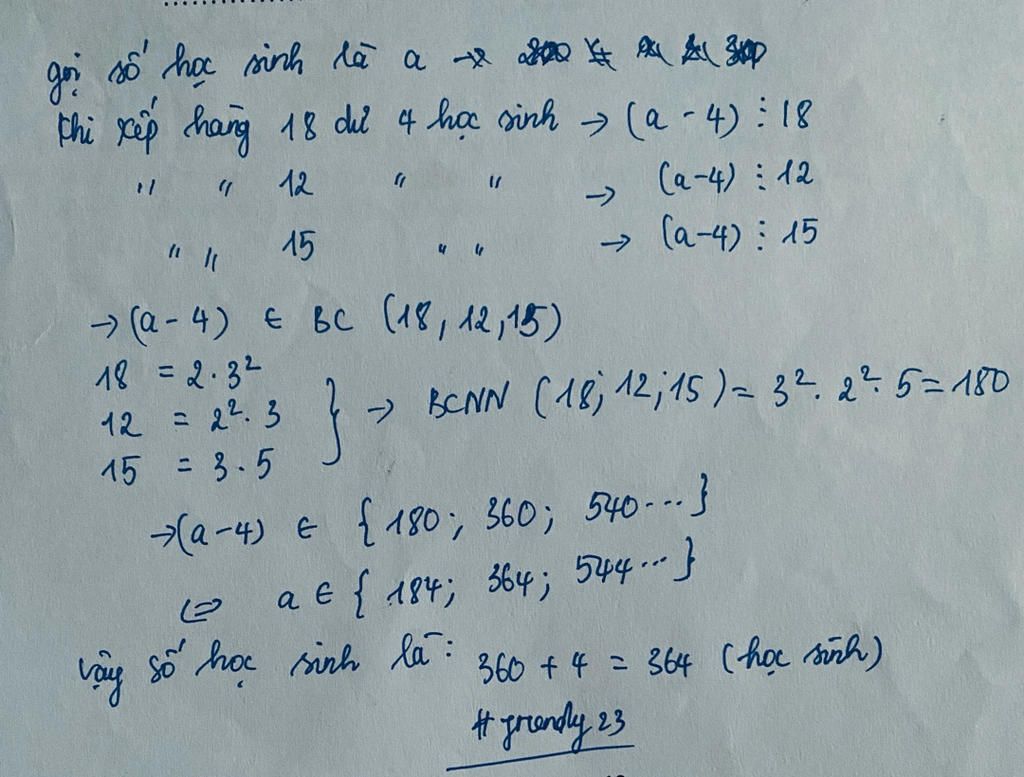 gọi số học sinh là a →
Khi xếp hàng 18 dư 4 học sinh → (a - 4) ⋮ 18
" " 12 " " → (a-4) ⋮ 12
" " 15 " " → (a-4) ⋮ 15
→ (a - 4) ∈ BC (18, 12, 15)
18 = 2 . 3²
12 = 2² . 3
15 = 3 . 5
} → BCNN (18; 12; 15) = 3² . 2² . 5 = 180
→ (a - 4) ∈ { 180; 360; 540 ... }
⇔ a ∈ { 184; 364; 544 ... }
vậy số học sinh là: 360 + 4 = 364 (học sinh)